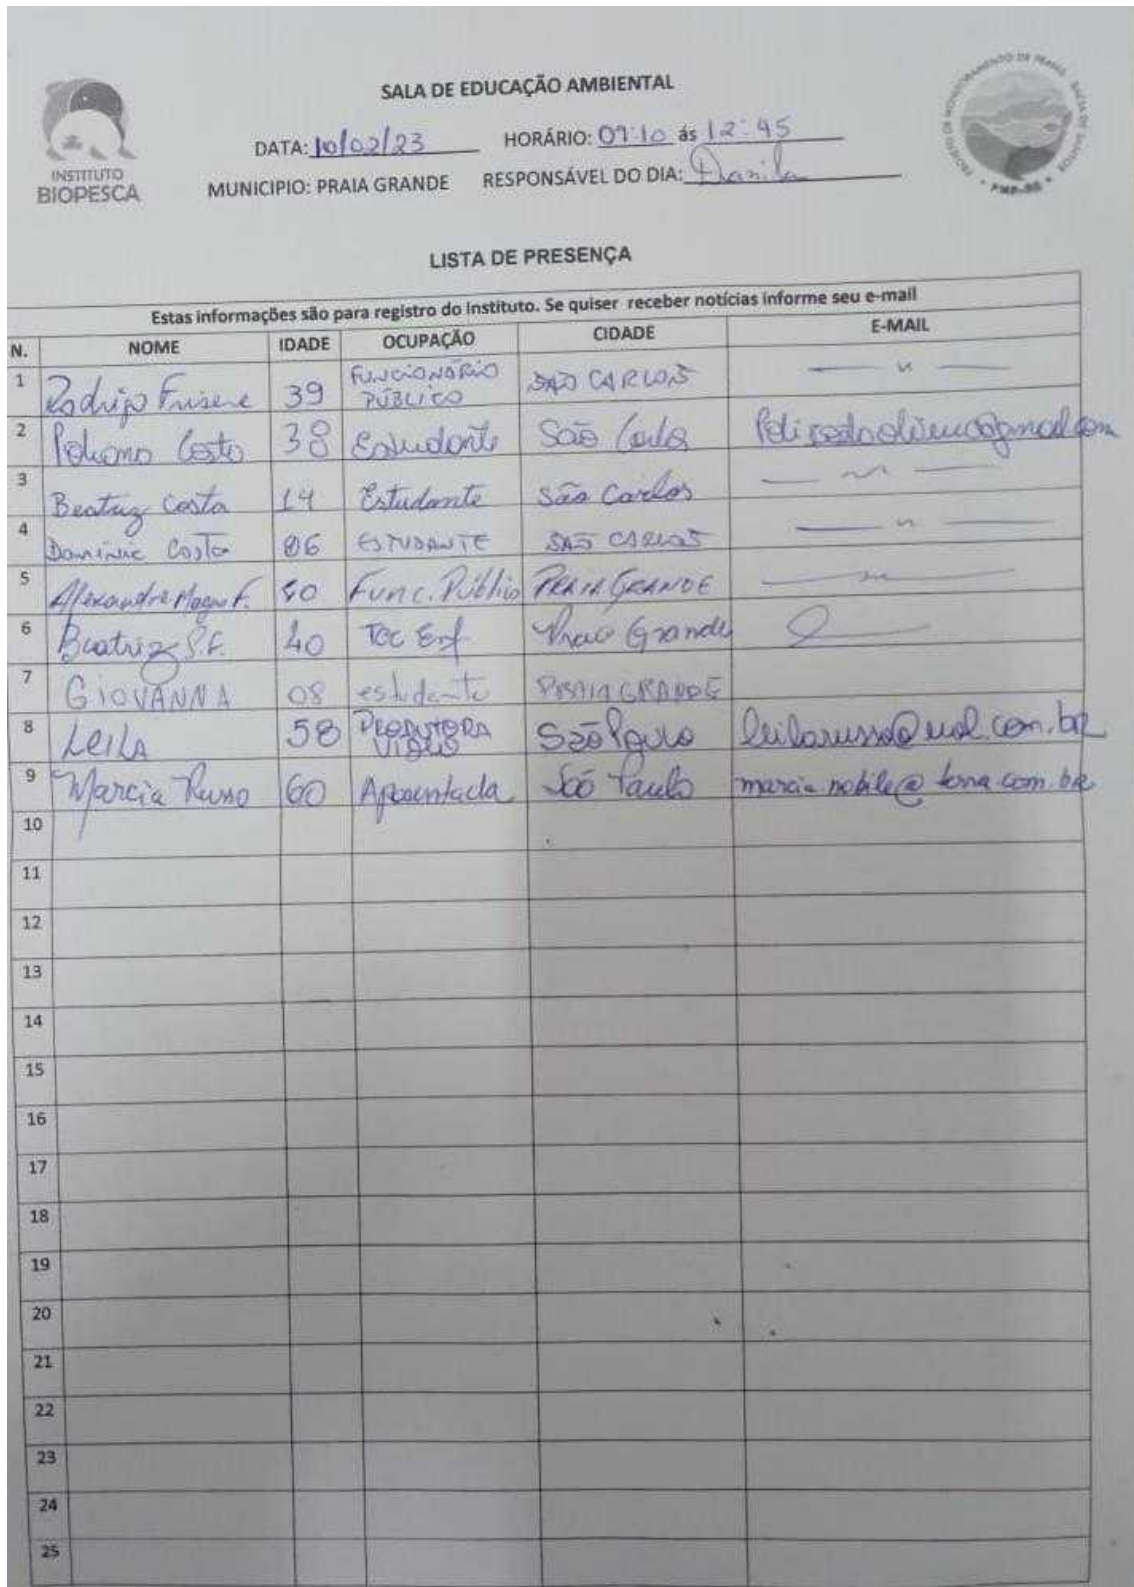 SALA DE EDUCAÇÃO AMBIENTAL
INSTITUTO
BIOPESCA
DATA: 10/02/23 HORÁRIO: 09:10 ás 12:45
MUNICIPIO: PRAIA GRANDE RESPONSÁVEL DO DIA:
PROJETO DE MONITORAMENTO DE PRAIAS BACIA DE SANTOS
PMP-BS
LISTA DE PRESENÇA
Estas informações são para registro do Instituto. Se quiser receber notícias informe seu e-mail
N. NOME IDADE OCUPAÇÃO CIDADE E-MAIL
1 Rodrigo 39 FUNCIONÁRIO PÚBLICO SÃO CARLOS
2 Costa 38 Estudante São Carlos
3 Beatriz Costa 14 Estudante São Carlos
4 Costa 06 ESTUDANTE SÃO CARLOS
5 Alexandre F. Func. Público PRAIA GRANDE
6 Beatriz S.F. 40 Tec Enf Praia Grande
7 GIOVANNA 08 estudante PRAIA GRANDE
8 LeiLA 58 PRODUTORA VIDEO São Paulo leilarusso@uol.com.br
9 Marcia Russo 60 Aposentada São Paulo marcia.nobile@terra.com.br
10
11
12
13
14
15
16
17
18
19
20
21
22
23
24
25